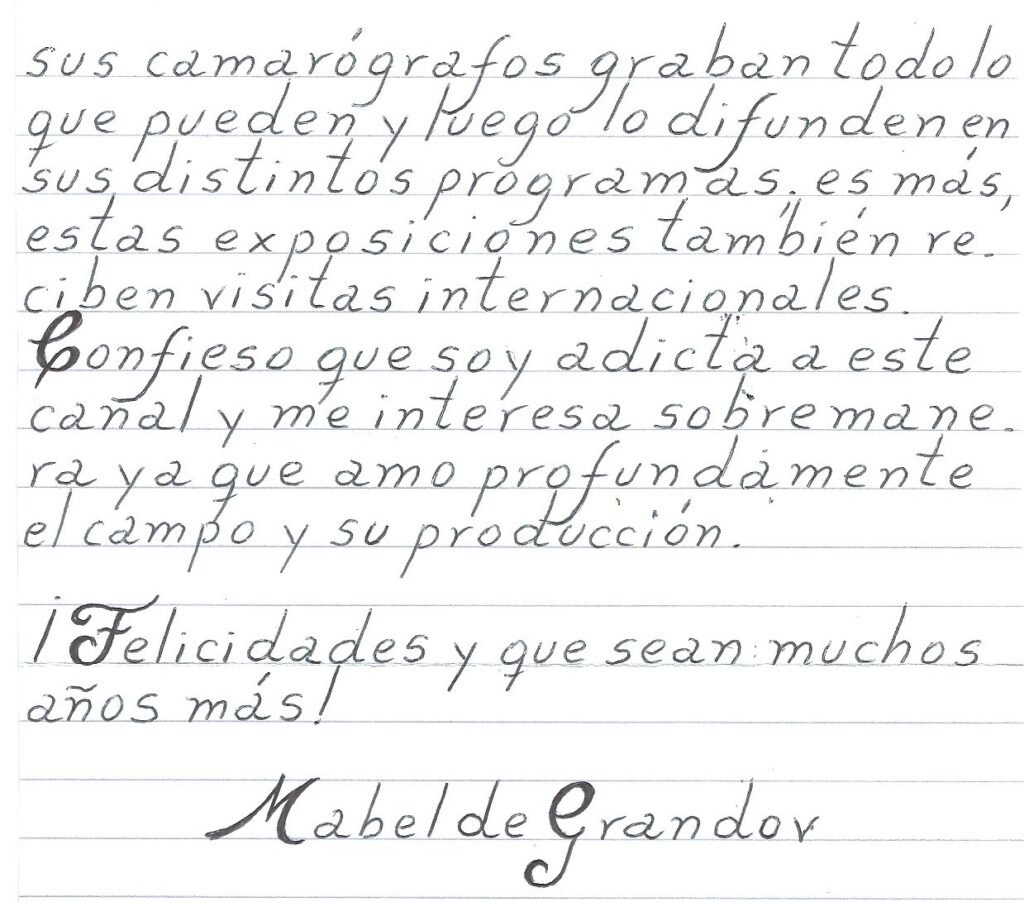 sus camarógrafos graban todo lo
que pueden y luego lo difunden en
sus distintos programas. es más,
estas exposiciones también re-
ciben visitas internacionales.
Confieso que soy adicta a este
canal y me interesa sobremane-
ra ya que amo profundamente
el campo y su producción.
¡Felicidades y que sean muchos
años más!
Mabel de Grandov